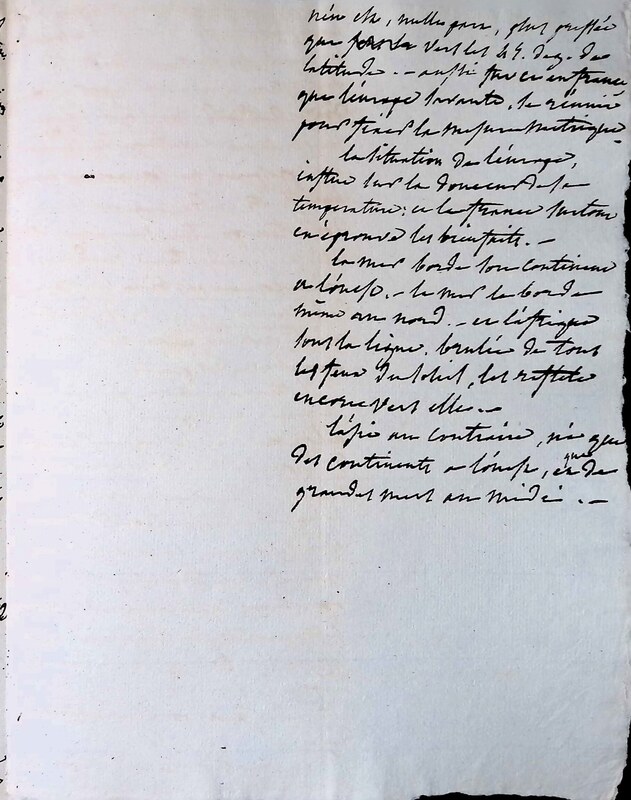 n'en est, nulle part, plus
que vers les 45. deg. de
latitude. — aussi fut ce en france
que l'europe savante, se réunie
pour fixer la mesure métrique.
la situation de l'europe,
influe sur la douceur de sa
temperature: et la france surtout
en eprouve les bienfaits. —
la mer borde son continent
a l'ouest. — la mer la borde
même au nord. — et l'afrique
sous la ligne. brulée de tous
les feux du soleil, les reflete
encore vers elle. —
l'asie au contraire, n'a que
des continents a l'ouest, que de
grandes mers au midi. —